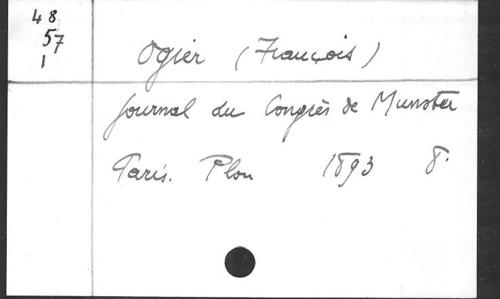 48
57
1
Ogier (François)
Journal du Congrès de Munster
Paris. Plon 1893 8.